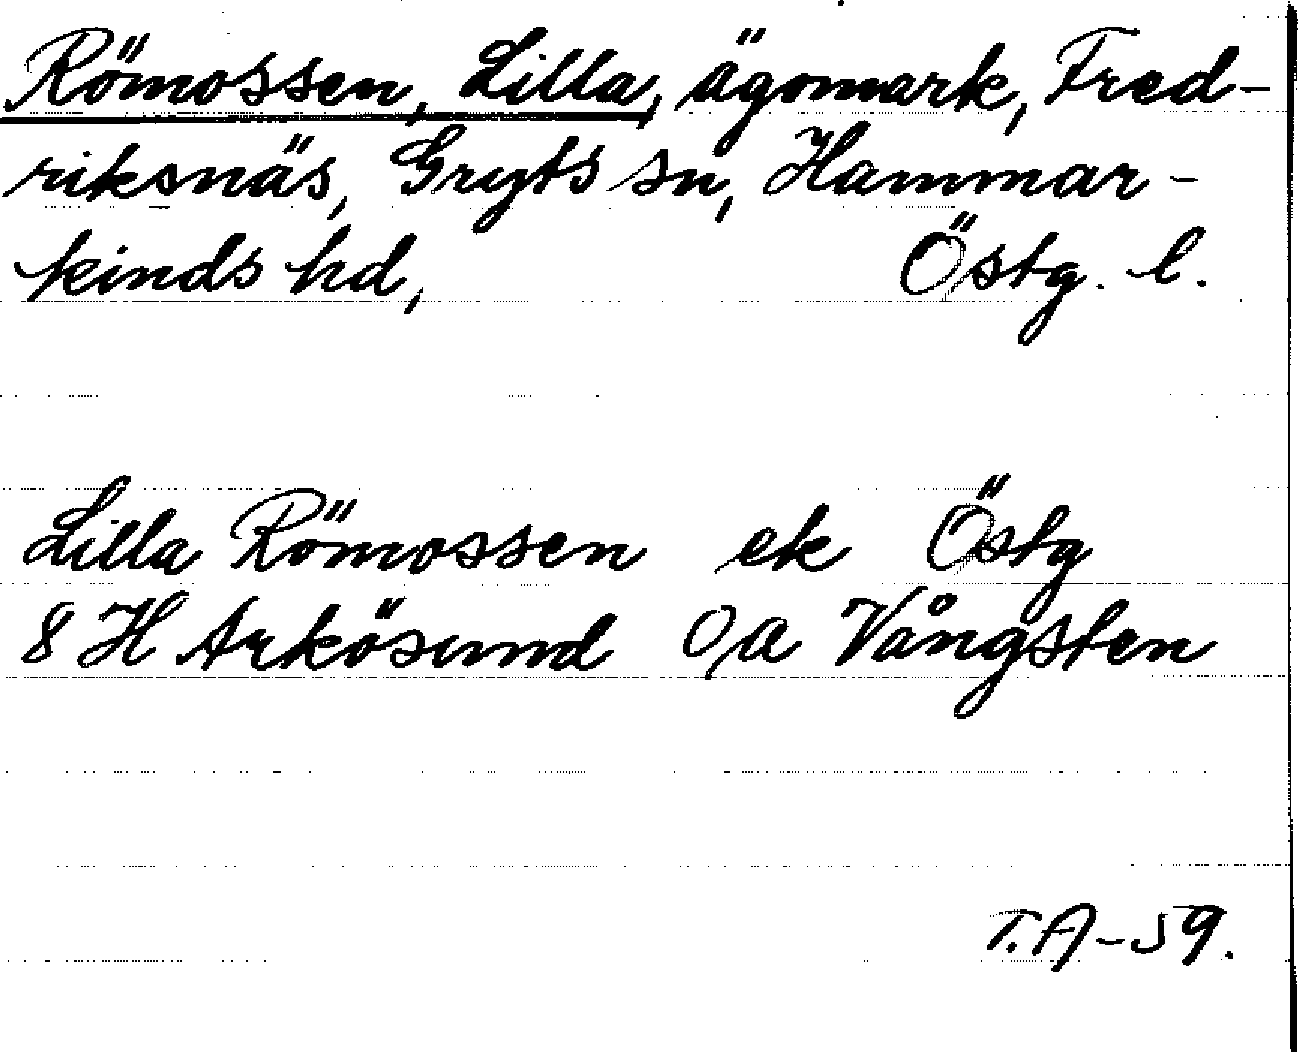 Römossen, Lilla, ägomark, Fred-
riksnäs, Gryts sn, Hammar-
kinds hd, Östg. l.
Lilla Römossen ek Östg
8 H Arkösund O/a Vångsten
T.A-59.